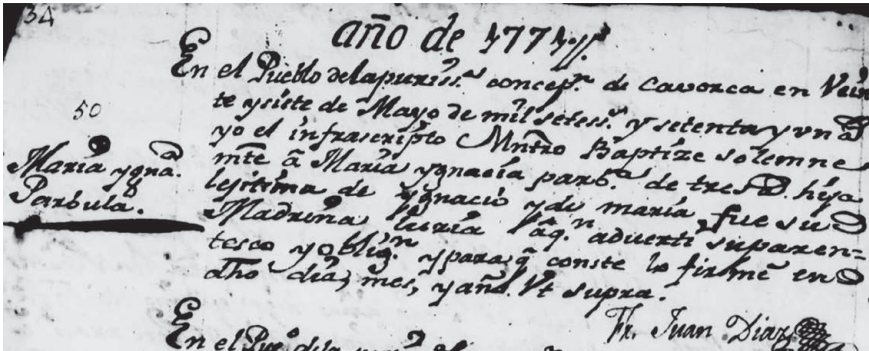 34
año de 1771
50
María ygna.ª
Parbula.
En el Pueblo de la puriss.ª concep.n de Cavorca en Vein
te y siete de Mayo de mil setess.s y setenta y un a
yo el infrascripto Mntro Baptize solemne
mte â María ygnacia parb.ª de tres d. hija
lejitima de ygnacio y de maria, fue su
Madrina Luria âq.n adverti su paren=
tesco y oblig.n y para q̃ conste lo firmé en
dho dia, mes, y año Vt supra.
Fr. Juan Diaz
En el Pue.o de la